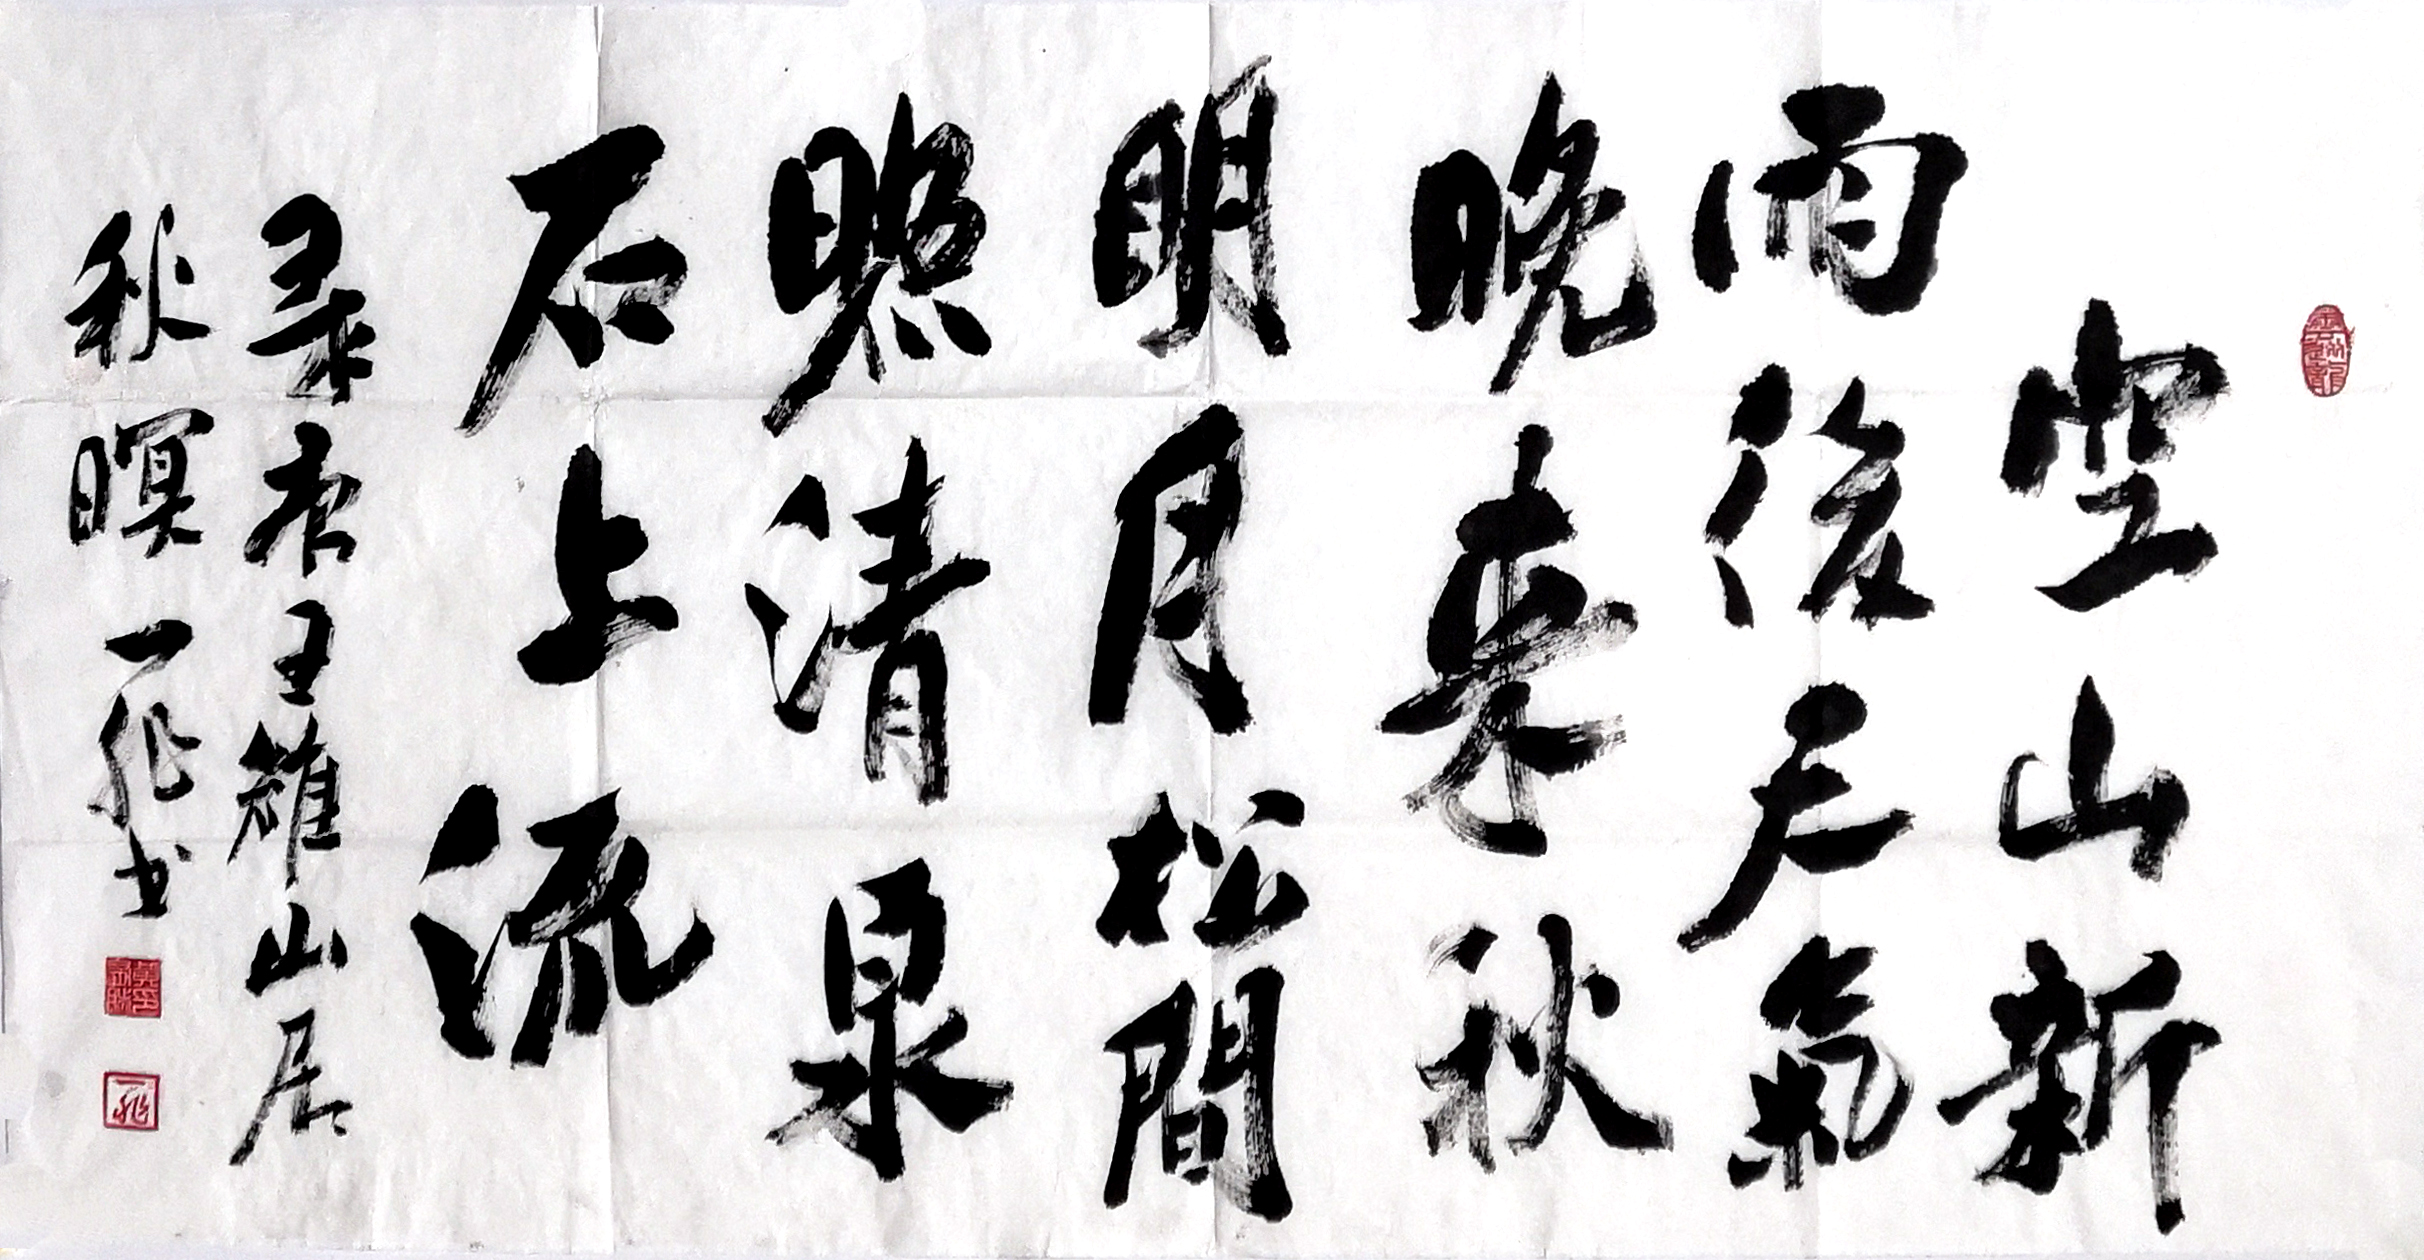 空山新
雨後天氣
晚來秋
明月松間
照清泉
石上流
录唐王維山居
秋暝 一飛书